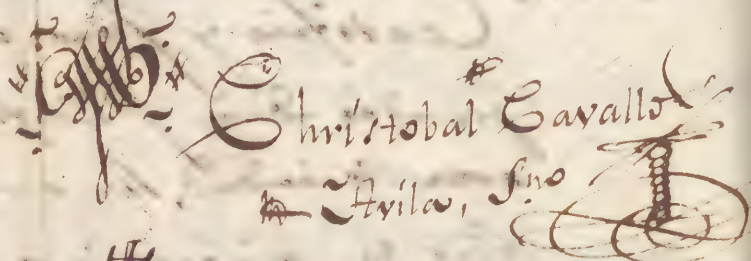 Christobal Cavallo
Avila, sno